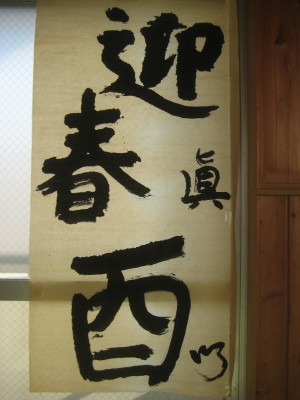 迎
春
眞
酉